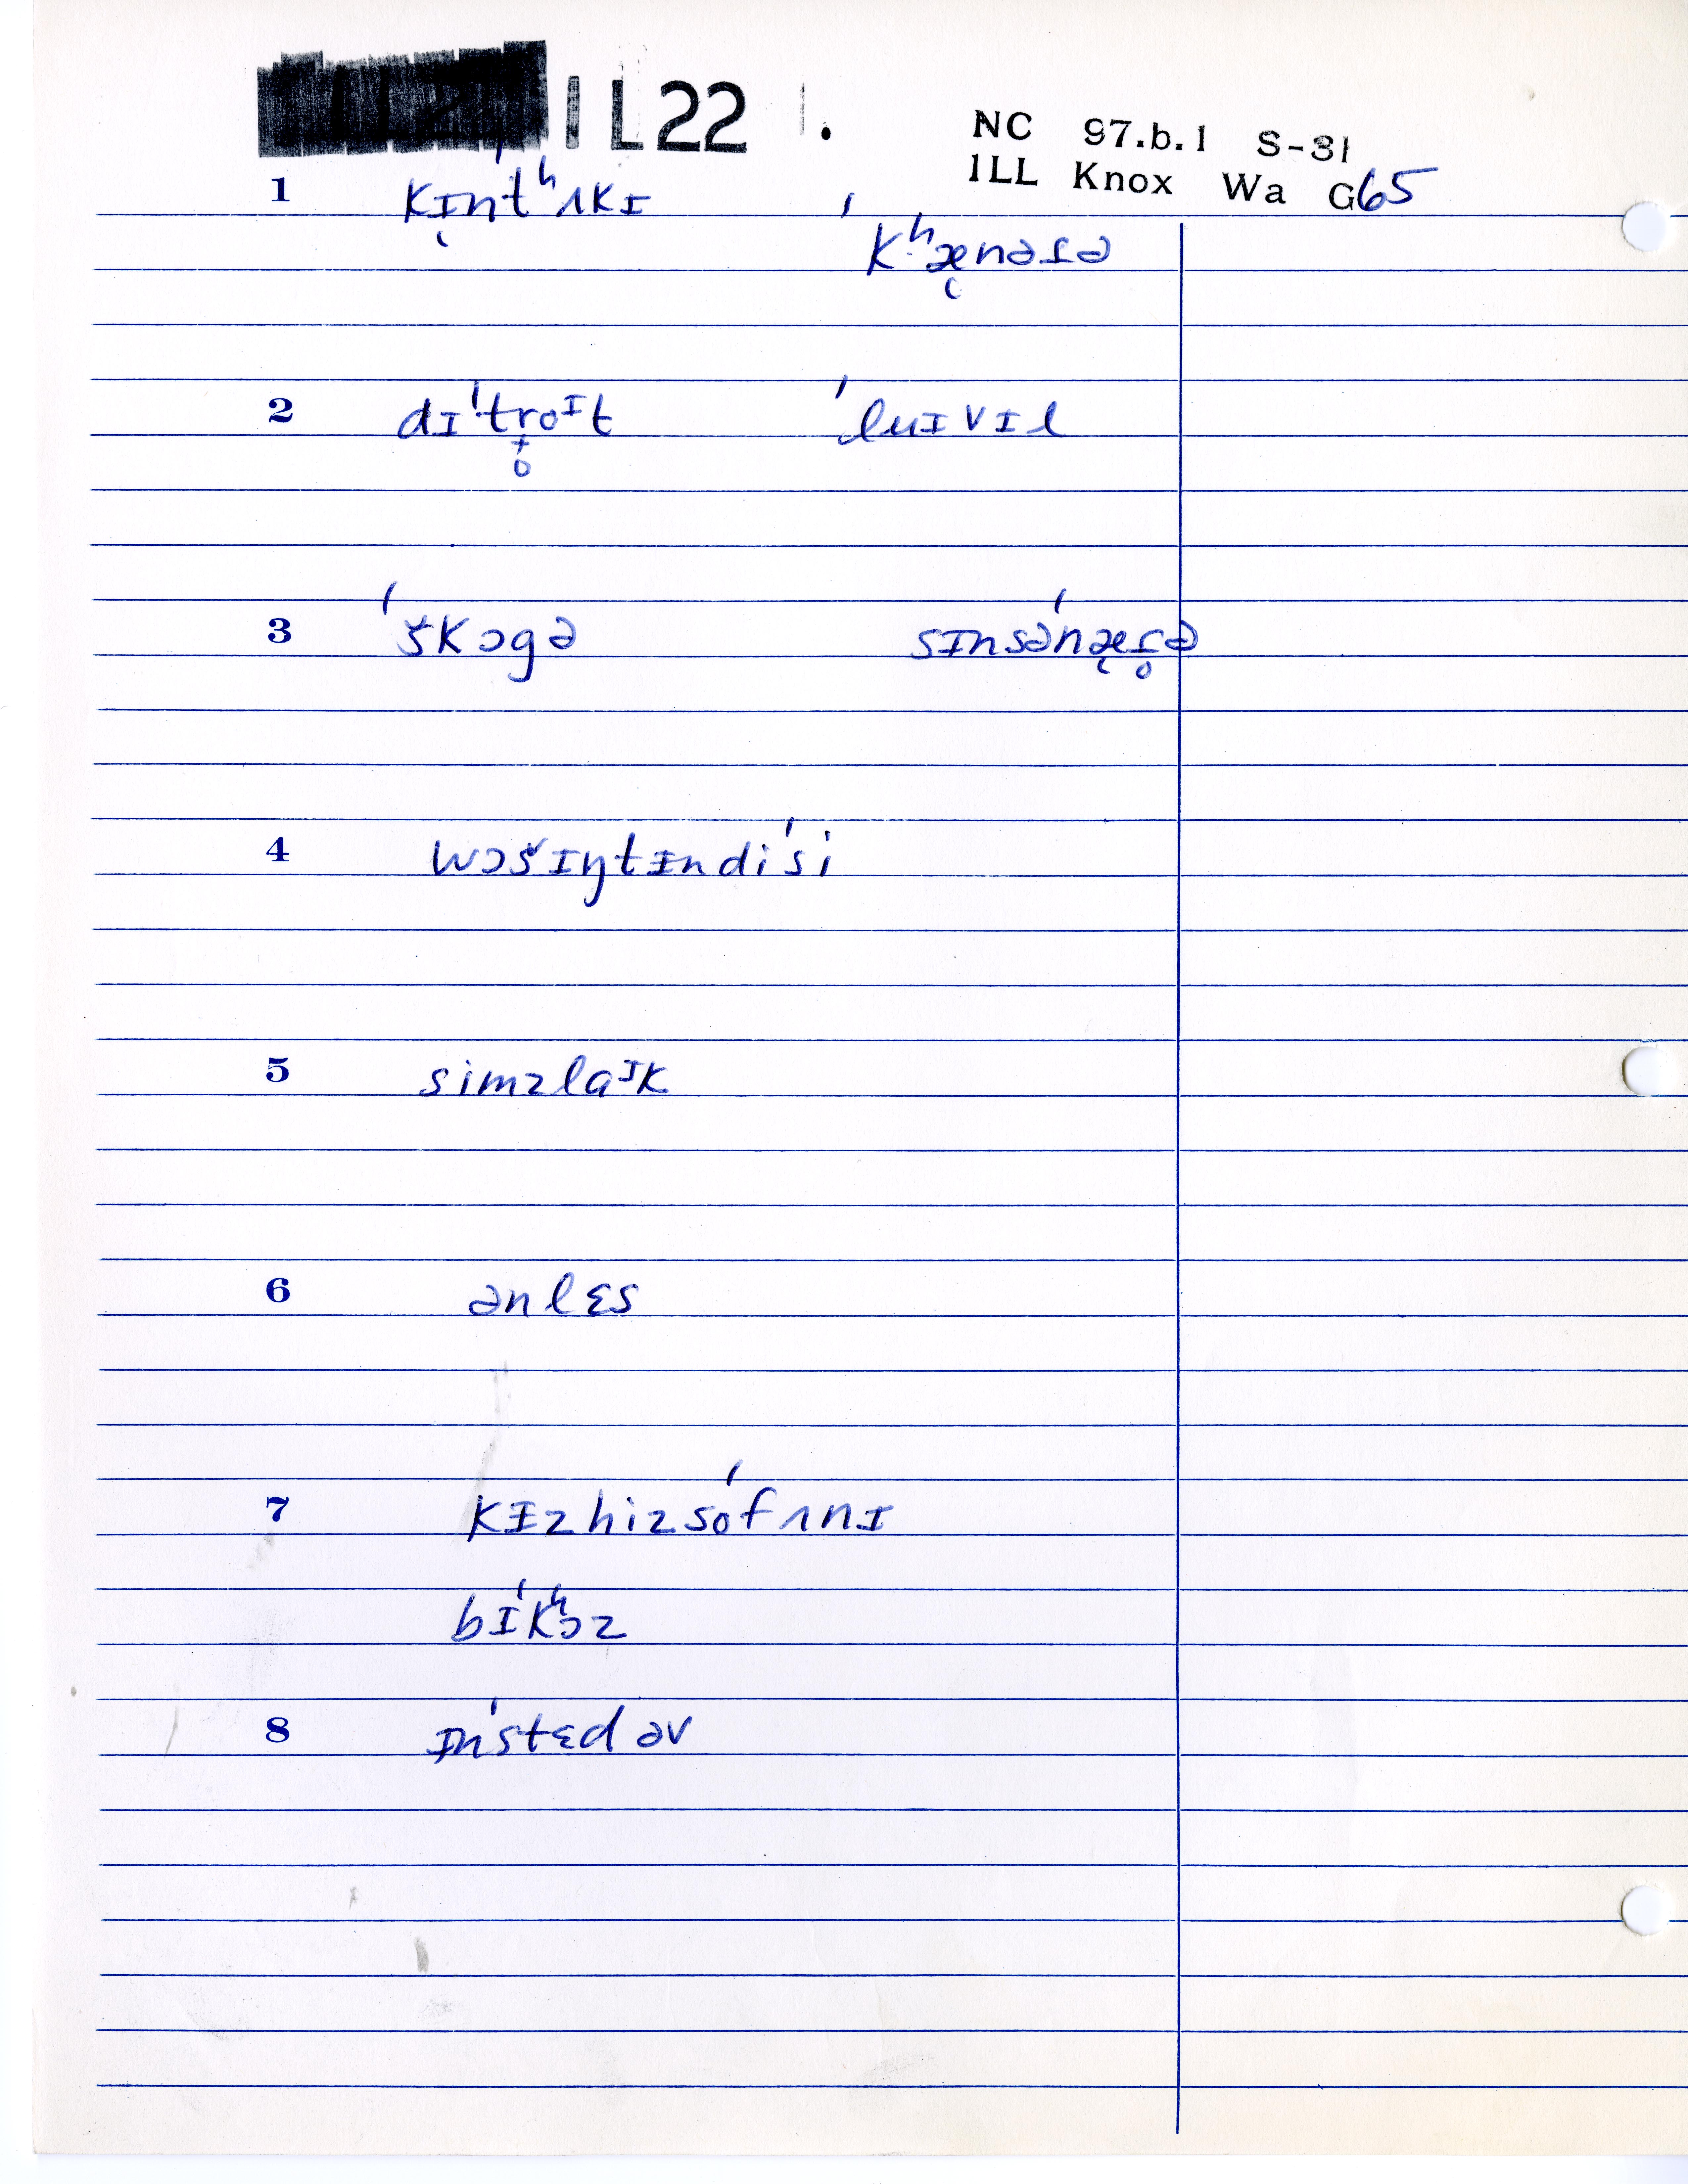 IL22 .
NC 97.b.1 S-31
ILL Knox Wa G65
1 kɪ̨nˈtʰʌkɪ
ˈkʰæ̨nəɾə
2 dɪˈtro̝ᶦt ˈluɪvɪl
3 ˈškɔgə sɪnsəˈnæ̨ɾ̥ə
4 wɔšɪŋtɪndiˈsi
5 simzlaᶦk
6 ənlɛs
7 kɪzhizsoˈfʌnɪ
bɪˈkʰɔz
8 ɪnˈstɛd əv